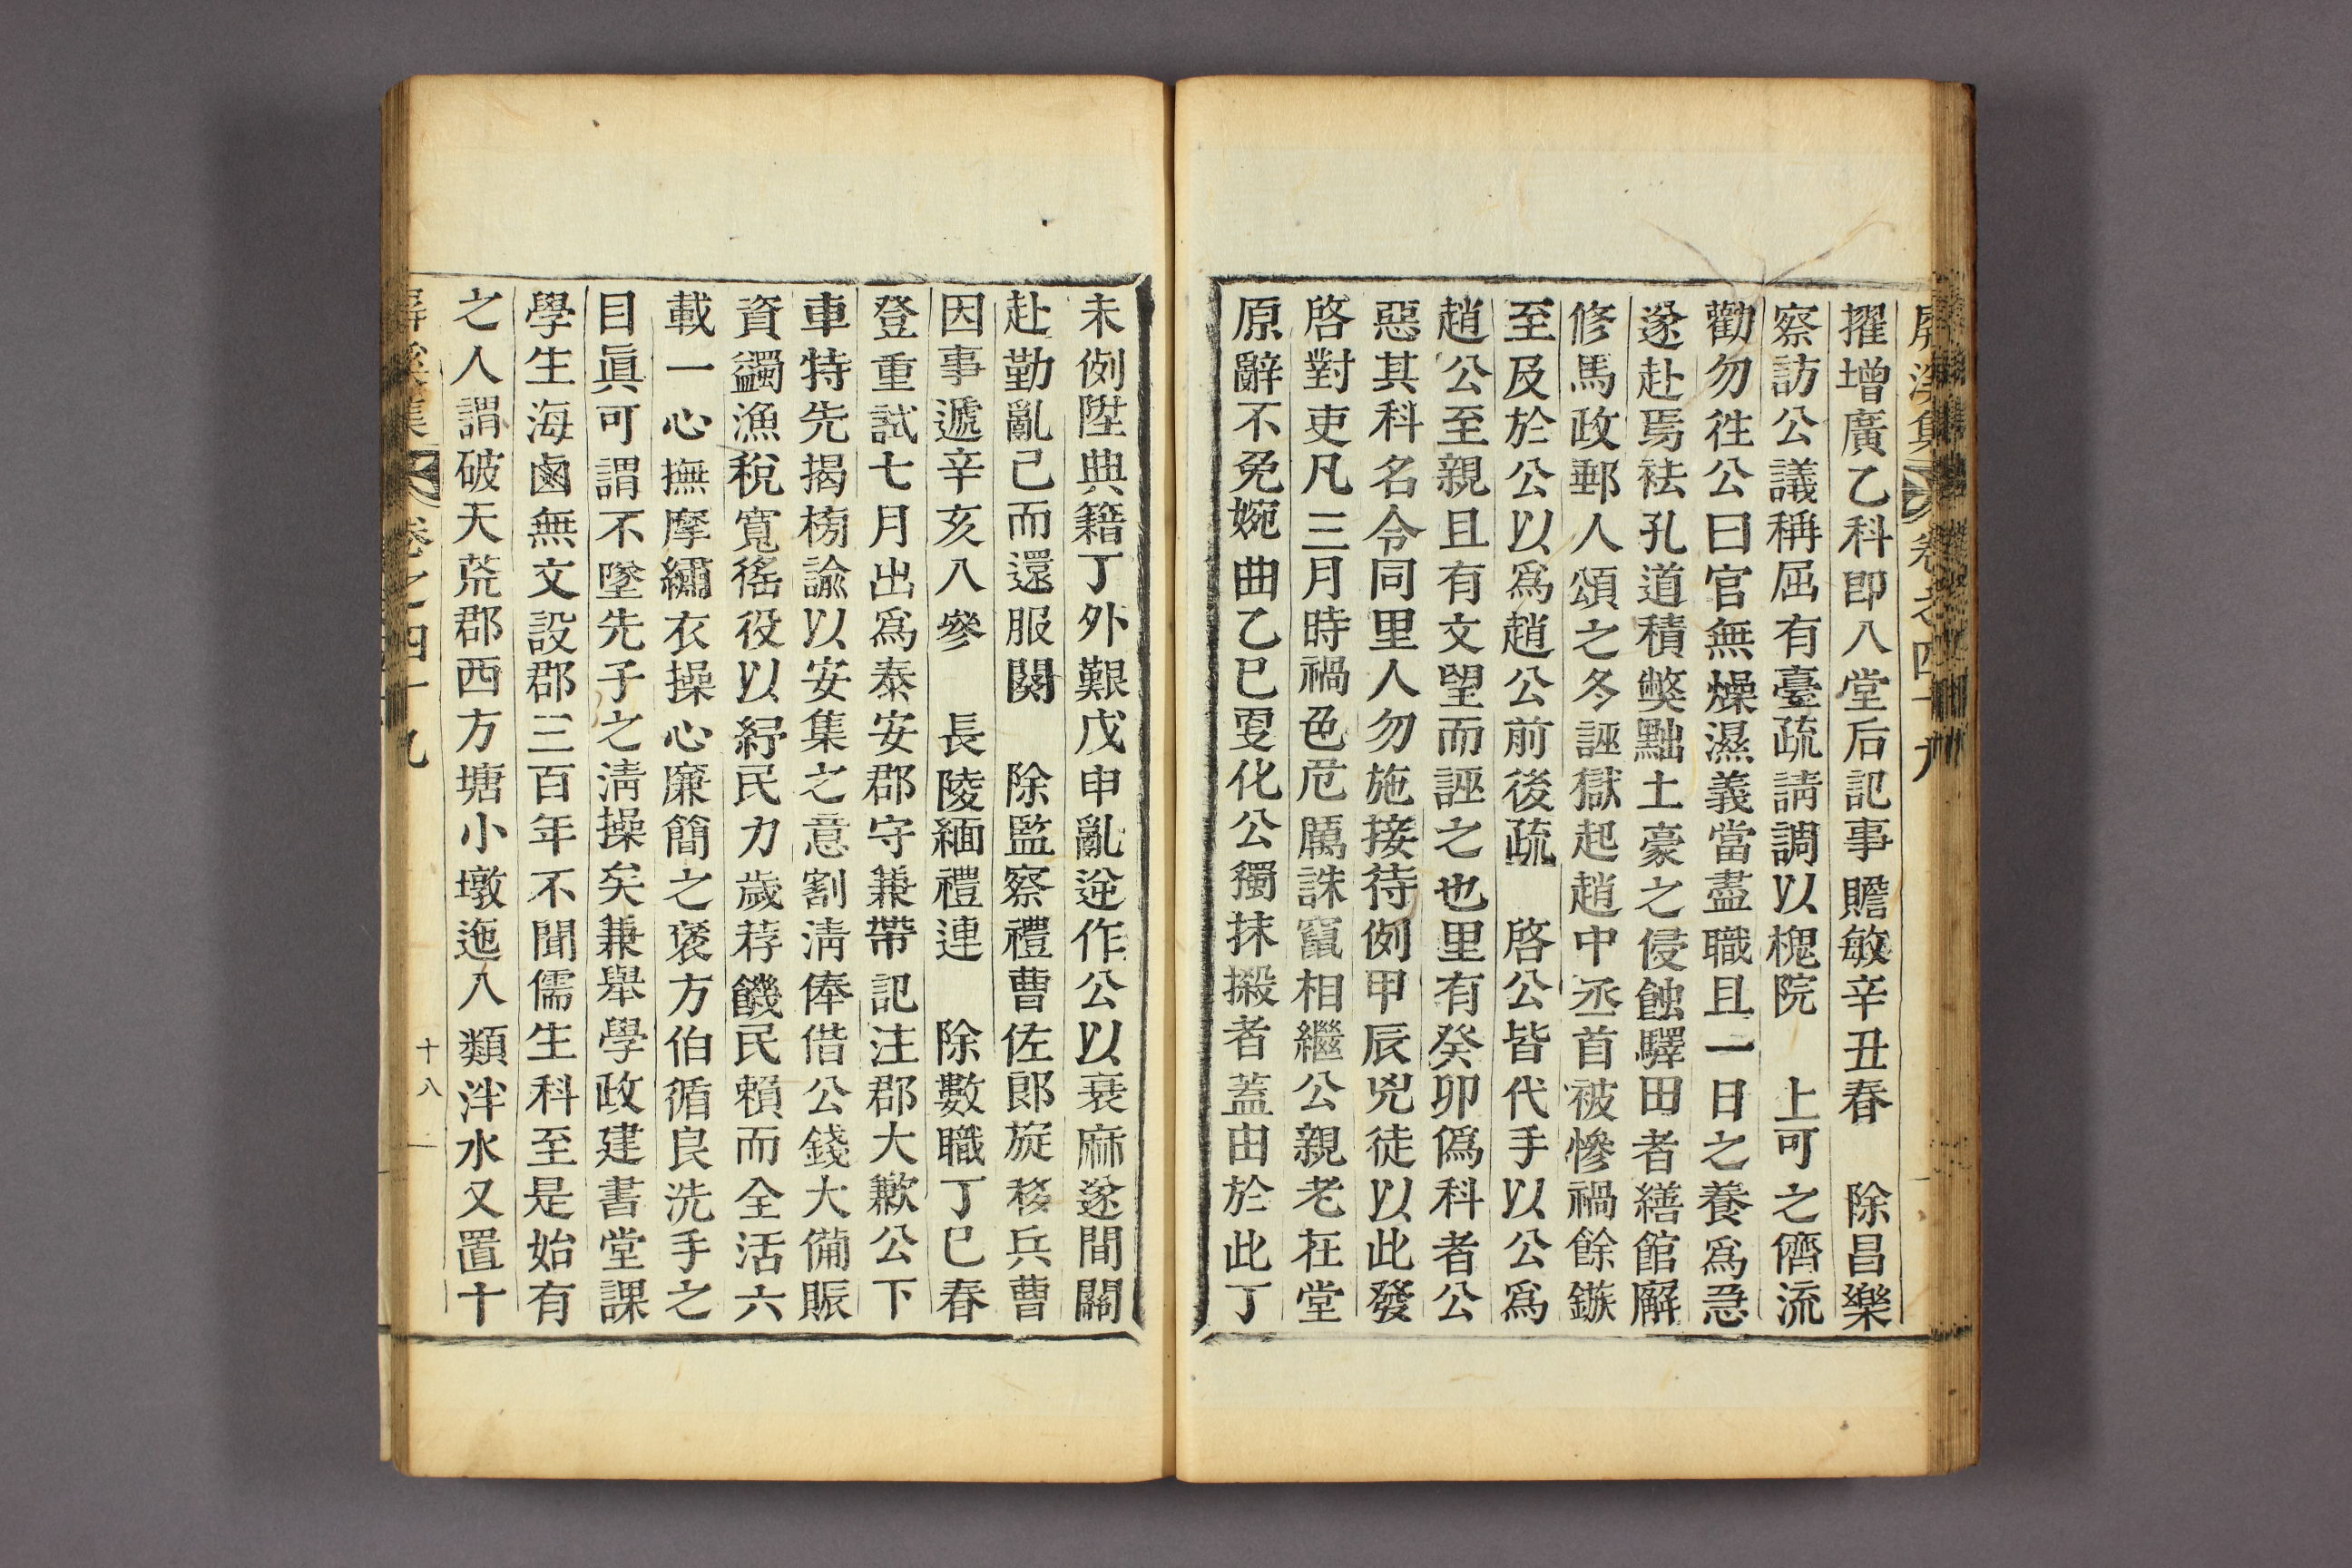 屛溪集 卷之四十九
擢增廣乙科卽入堂后記事贍敏辛丑春 除昌樂
察訪公議稱屈有臺疏請調以槐院 上可之儕流
勸勿徃公曰官無燥濕義當盡職且一日之養爲急
遂赴焉袪孔道積弊黜土豪之侵蝕驛田者繕館廨
修馬政郵人頌之冬誣獄起趙中丞首被慘禍餘鏃
至及於公以爲趙公前後疏 啓公皆代手以公爲
趙公至親且有文望而誣之也里有癸卯僞科者公
惡其科名令同里人勿施接待例甲辰兇徒以此發
啓對吏凡三月時禍色危厲誅竄相繼公親老在堂
原辭不免婉曲乙巳更化公獨抹摋者蓋由於此丁
未例陞典籍丁外艱戊申亂逆作公以衰麻遂間關
赴勤亂已而還服闋 除監察禮曹佐郞旋移兵曹
因事遞辛亥入參 長陵緬禮連 除數職丁巳春
登重試七月出爲泰安郡守兼帶記注郡大歉公下
車特先揭榜諭以安集之意割淸俸借公錢大備賑
資蠲漁稅寬徭役以紓民力歲荐饑民賴而全活六
載一心撫摩繡衣操心廉簡之褒方伯循良洗手之
目眞可謂不墜先子之淸操矣兼擧學政建書堂課
學生海鹵無文設郡三百年不聞儒生科至是始有
之人謂破天荒郡西方塘小墩迤入類泮水又置十
屛溪集 卷之四十九 十八